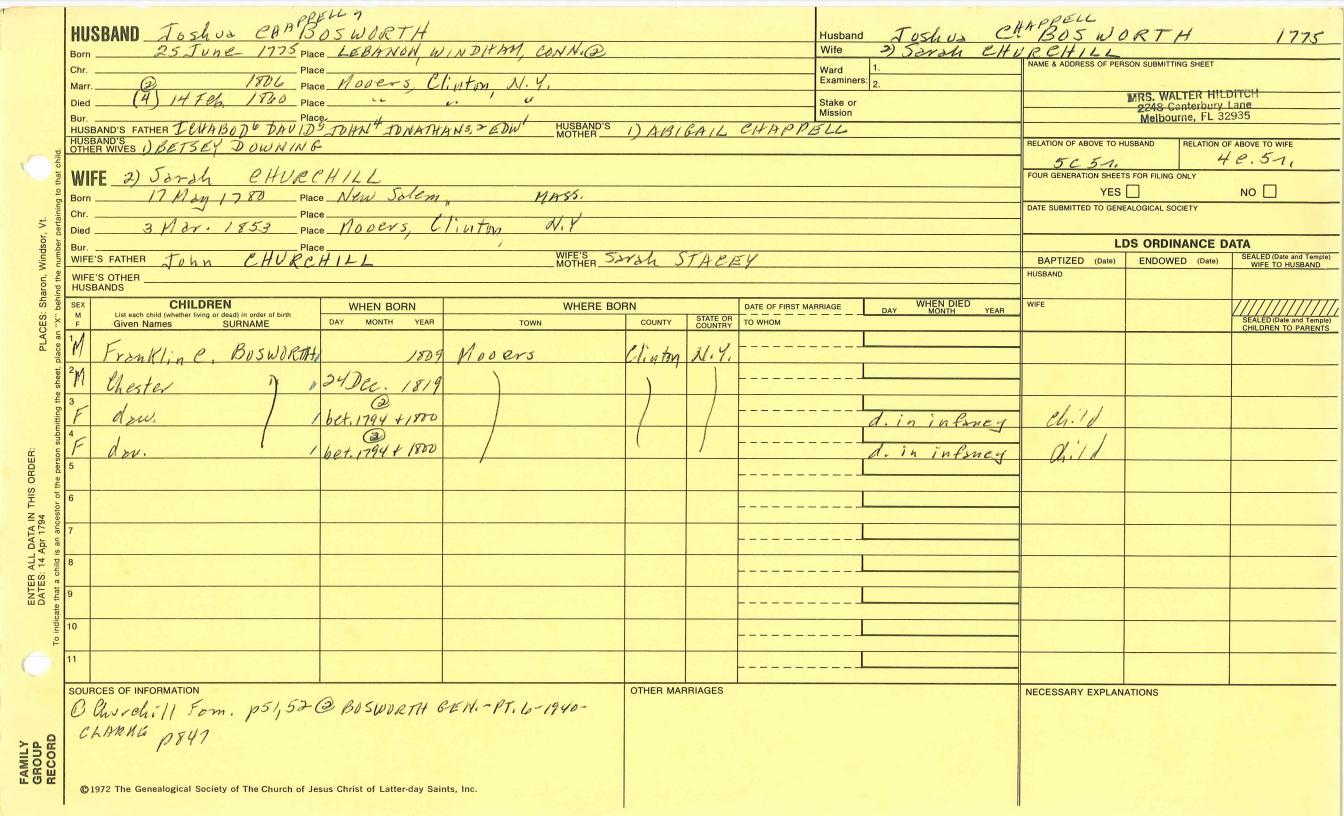 HUSBAND Joshua CHAPPELL 7 BOSWORTH
Born 25 June 1775 Place LEBANON, WINDHAM, CONN. ②
Chr. Place
Marr. ② 1806 Place Mooers, Clinton, N.Y.
Died (4) 14 Feb. 1860 Place " " "
Bur. Place
HUSBAND'S FATHER ICHABOD 6 DAVID 5 JOHN 4 JONATHAN 3, 2 EDW 1 HUSBAND'S MOTHER 1) ABIGAIL CHAPPELL
HUSBAND'S OTHER WIVES 1) BETSEY DOWNING
WIFE 2) Sarah CHURCHILL
Born 17 May 1780 Place New Salem, MASS.
Chr. Place
Died 3 Mar. 1853 Place Mooers, Clinton, N.Y
Bur. Place
WIFE'S FATHER John CHURCHILL WIFE'S MOTHER Sarah STACEY
WIFE'S OTHER HUSBANDS
Husband Joshua CHAPPELL BOSWORTH 1775
Wife 2) Sarah CHURCHILL
Ward Examiners: 1.
2.
Stake or Mission
NAME & ADDRESS OF PERSON SUBMITTING SHEET
MRS. WALTER HILDITCH
2248 Canterbury Lane
Melbourne, FL 32935
RELATION OF ABOVE TO HUSBAND RELATION OF ABOVE TO WIFE
5c 5r. 4c. 5r,
FOUR GENERATION SHEETS FOR FILING ONLY
YES NO
DATE SUBMITTED TO GENEALOGICAL SOCIETY
LDS ORDINANCE DATA
BAPTIZED (Date) ENDOWED (Date) SEALED (Date and Temple) WIFE TO HUSBAND
HUSBAND
WIFE
SEALED (Date and Temple) CHILDREN TO PARENTS
SEX M F CHILDREN WHEN BORN WHERE BORN DATE OF FIRST MARRIAGE WHEN DIED
List each child (whether living or dead) in order of birth
Given Names SURNAME DAY MONTH YEAR TOWN COUNTY STATE OR COUNTRY TO WHOM DAY MONTH YEAR
1 M Franklin C. BOSWORTH 1809 Mooers Clinton N.Y.
2 M Chester 24 Dec. 1819
3 F dau. ② bet. 1794 + 1800 d. in infancy Child
4 F dau. ② bet. 1794 + 1800 d. in infancy Child
5
6
7
8
9
10
11
SOURCES OF INFORMATION
① Churchill Fam. p51,52 ② BOSWORTH GEN.-PT. 6-1940-
CLARKE p847
OTHER MARRIAGES
NECESSARY EXPLANATIONS
©1972 The Genealogical Society of The Church of Jesus Christ of Latter-day Saints, Inc.
FAMILY GROUP RECORD
ENTER ALL DATA IN THIS ORDER:
DATES: 14 Apr 1794 PLACES: Sharon, Windsor, Vt.
To indicate that a child is an ancestor of the person submitting the sheet, place an "X" behind the number pertaining to that child.